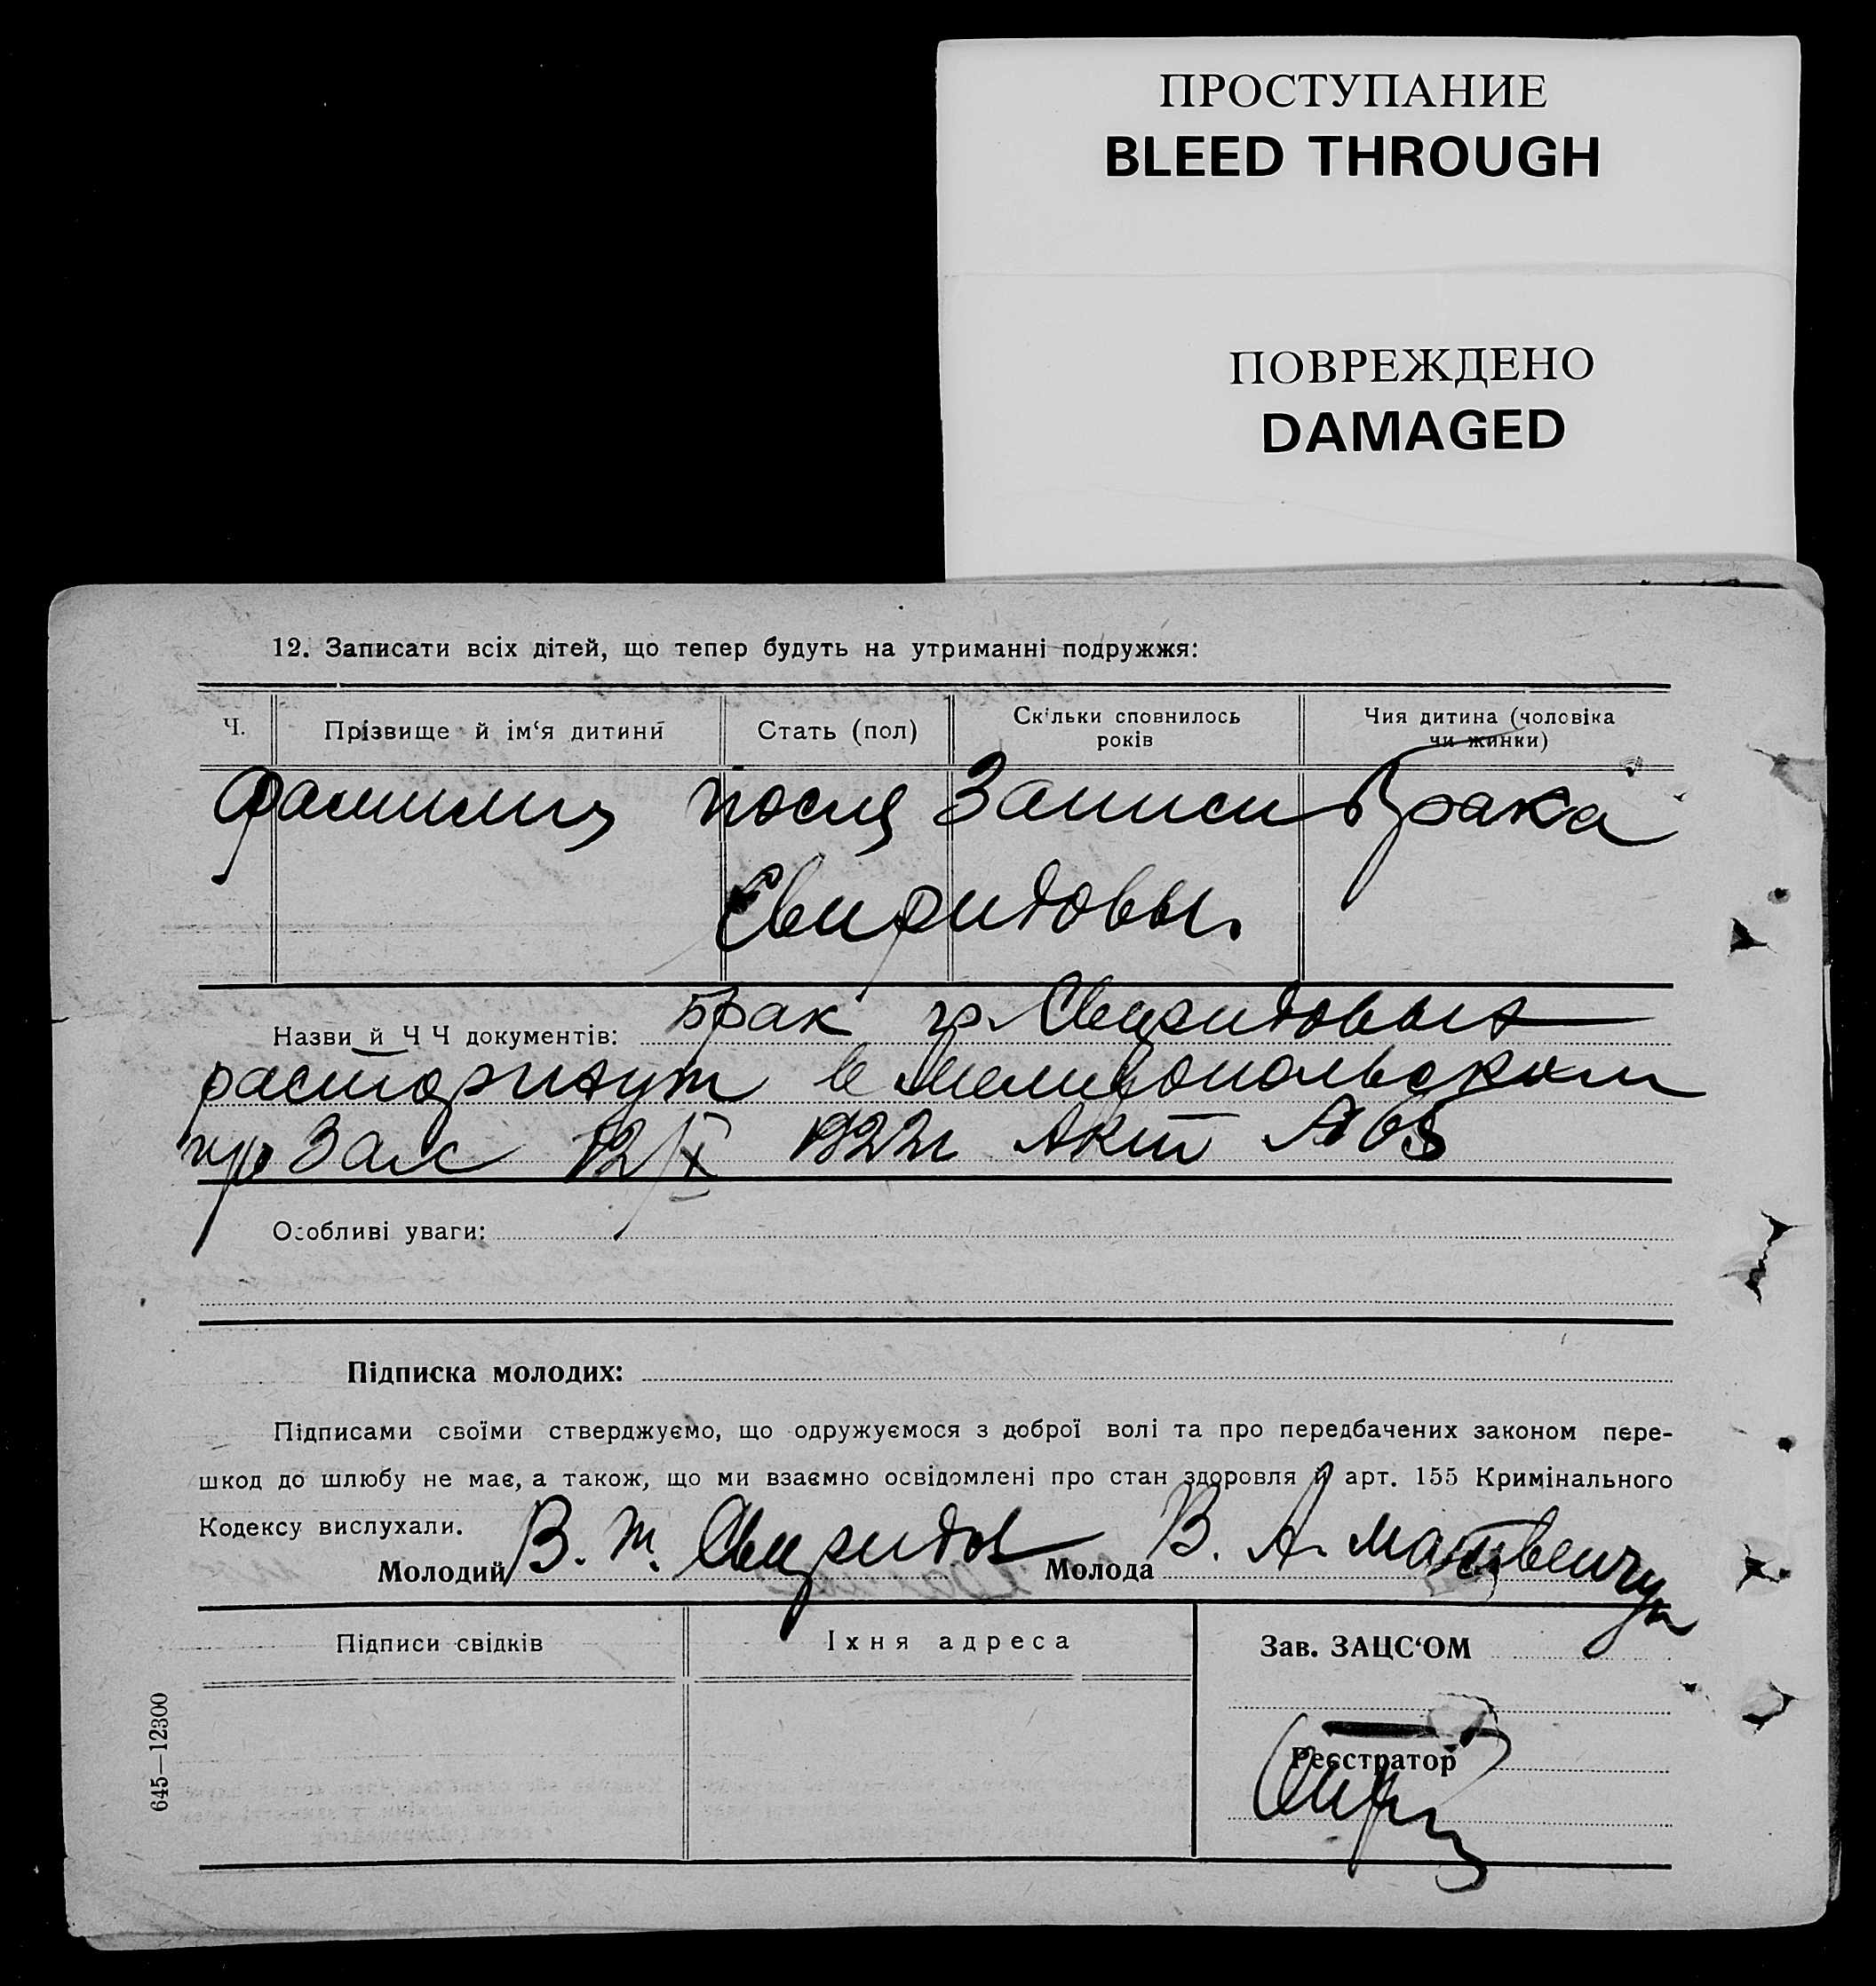 ПРОСТУПАНИЕ
BLEED THROUGH
ПОВРЕЖДЕНО
DAMAGED
12. Записати всіх дітей, що тепер будуть на утриманні подружжя:
Ч. Прізвище й ім‘я дитини Стать (пол) Скільки сповнилось років Чия дитина (чоловіка чи жинки)
Фамилия после Записи Брака
Свиридовы.
Назви й Ч Ч документів: Брак гр. Свиридовых
расторгнут в Мелитопольском
Загс 12/X 1922г Акт № 65
Особливі уваги:
Підписка молодих:
Підписами своїми стверджуємо, що одружуємося з доброї волі та про передбачених законом пере-
шкод до шлюбу не має, а також, що ми взаємно освідомлені про стан здоровля й арт. 155 Кримінального
Кодексу вислухали.
Молодий В. Т. Свиридов Молода В. А. Матвейчук
Підписи свідків Їхня адреса Зав. ЗАЦС‘ОМ
Реєстратор
645—12300